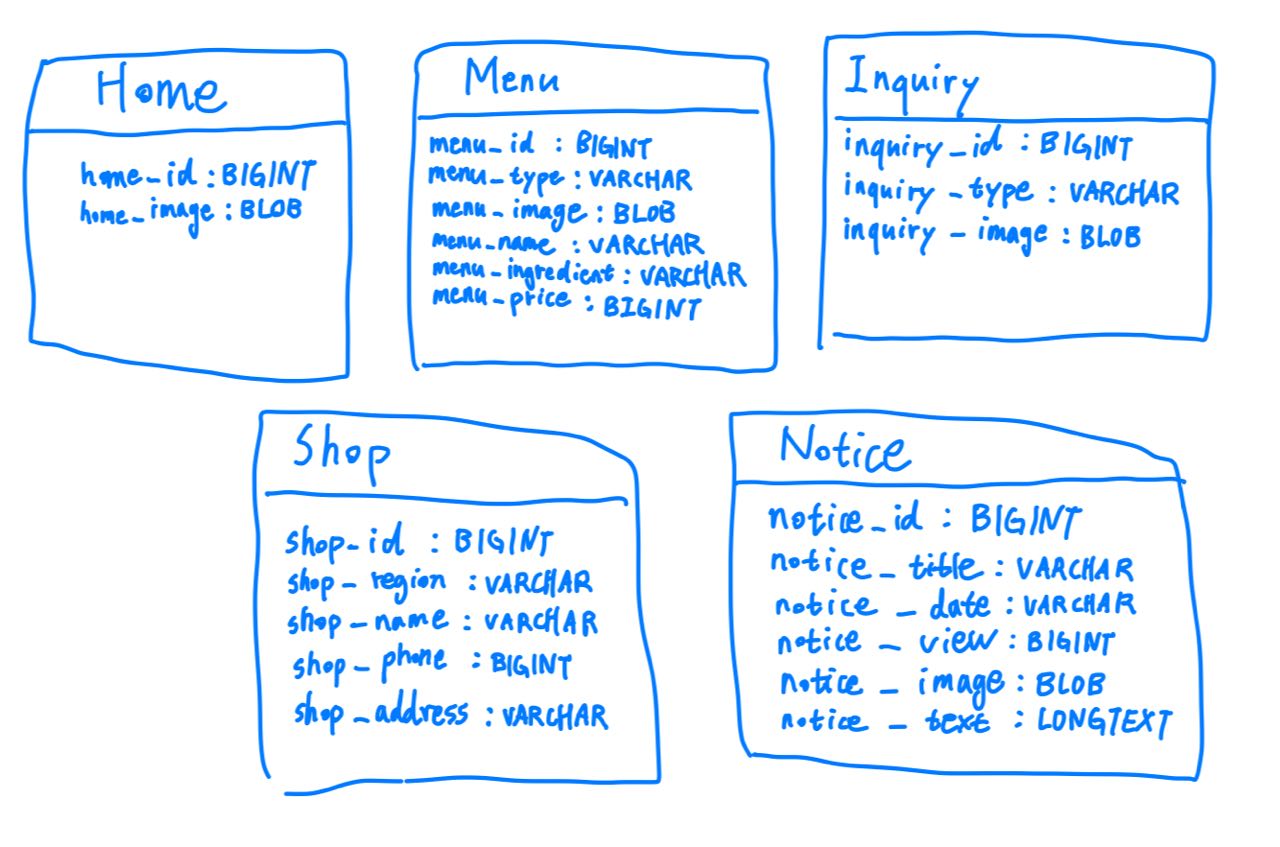 Home
home_id : BIGINT
home_image : BLOB
Menu
menu_id : BIGINT
menu_type : VARCHAR
menu_image : BLOB
menu_name : VARCHAR
menu_ingredient : VARCHAR
menu_price : BIGINT
Inquiry
inquiry_id : BIGINT
inquiry_type : VARCHAR
inquiry_image : BLOB
Shop
shop_id : BIGINT
shop_region : VARCHAR
shop_name : VARCHAR
shop_phone : BIGINT
shop_address : VARCHAR
Notice
notice_id : BIGINT
notice_title : VARCHAR
notice_date : VARCHAR
notice_view : BIGINT
notice_image : BLOB
notice_text : LONGTEXT